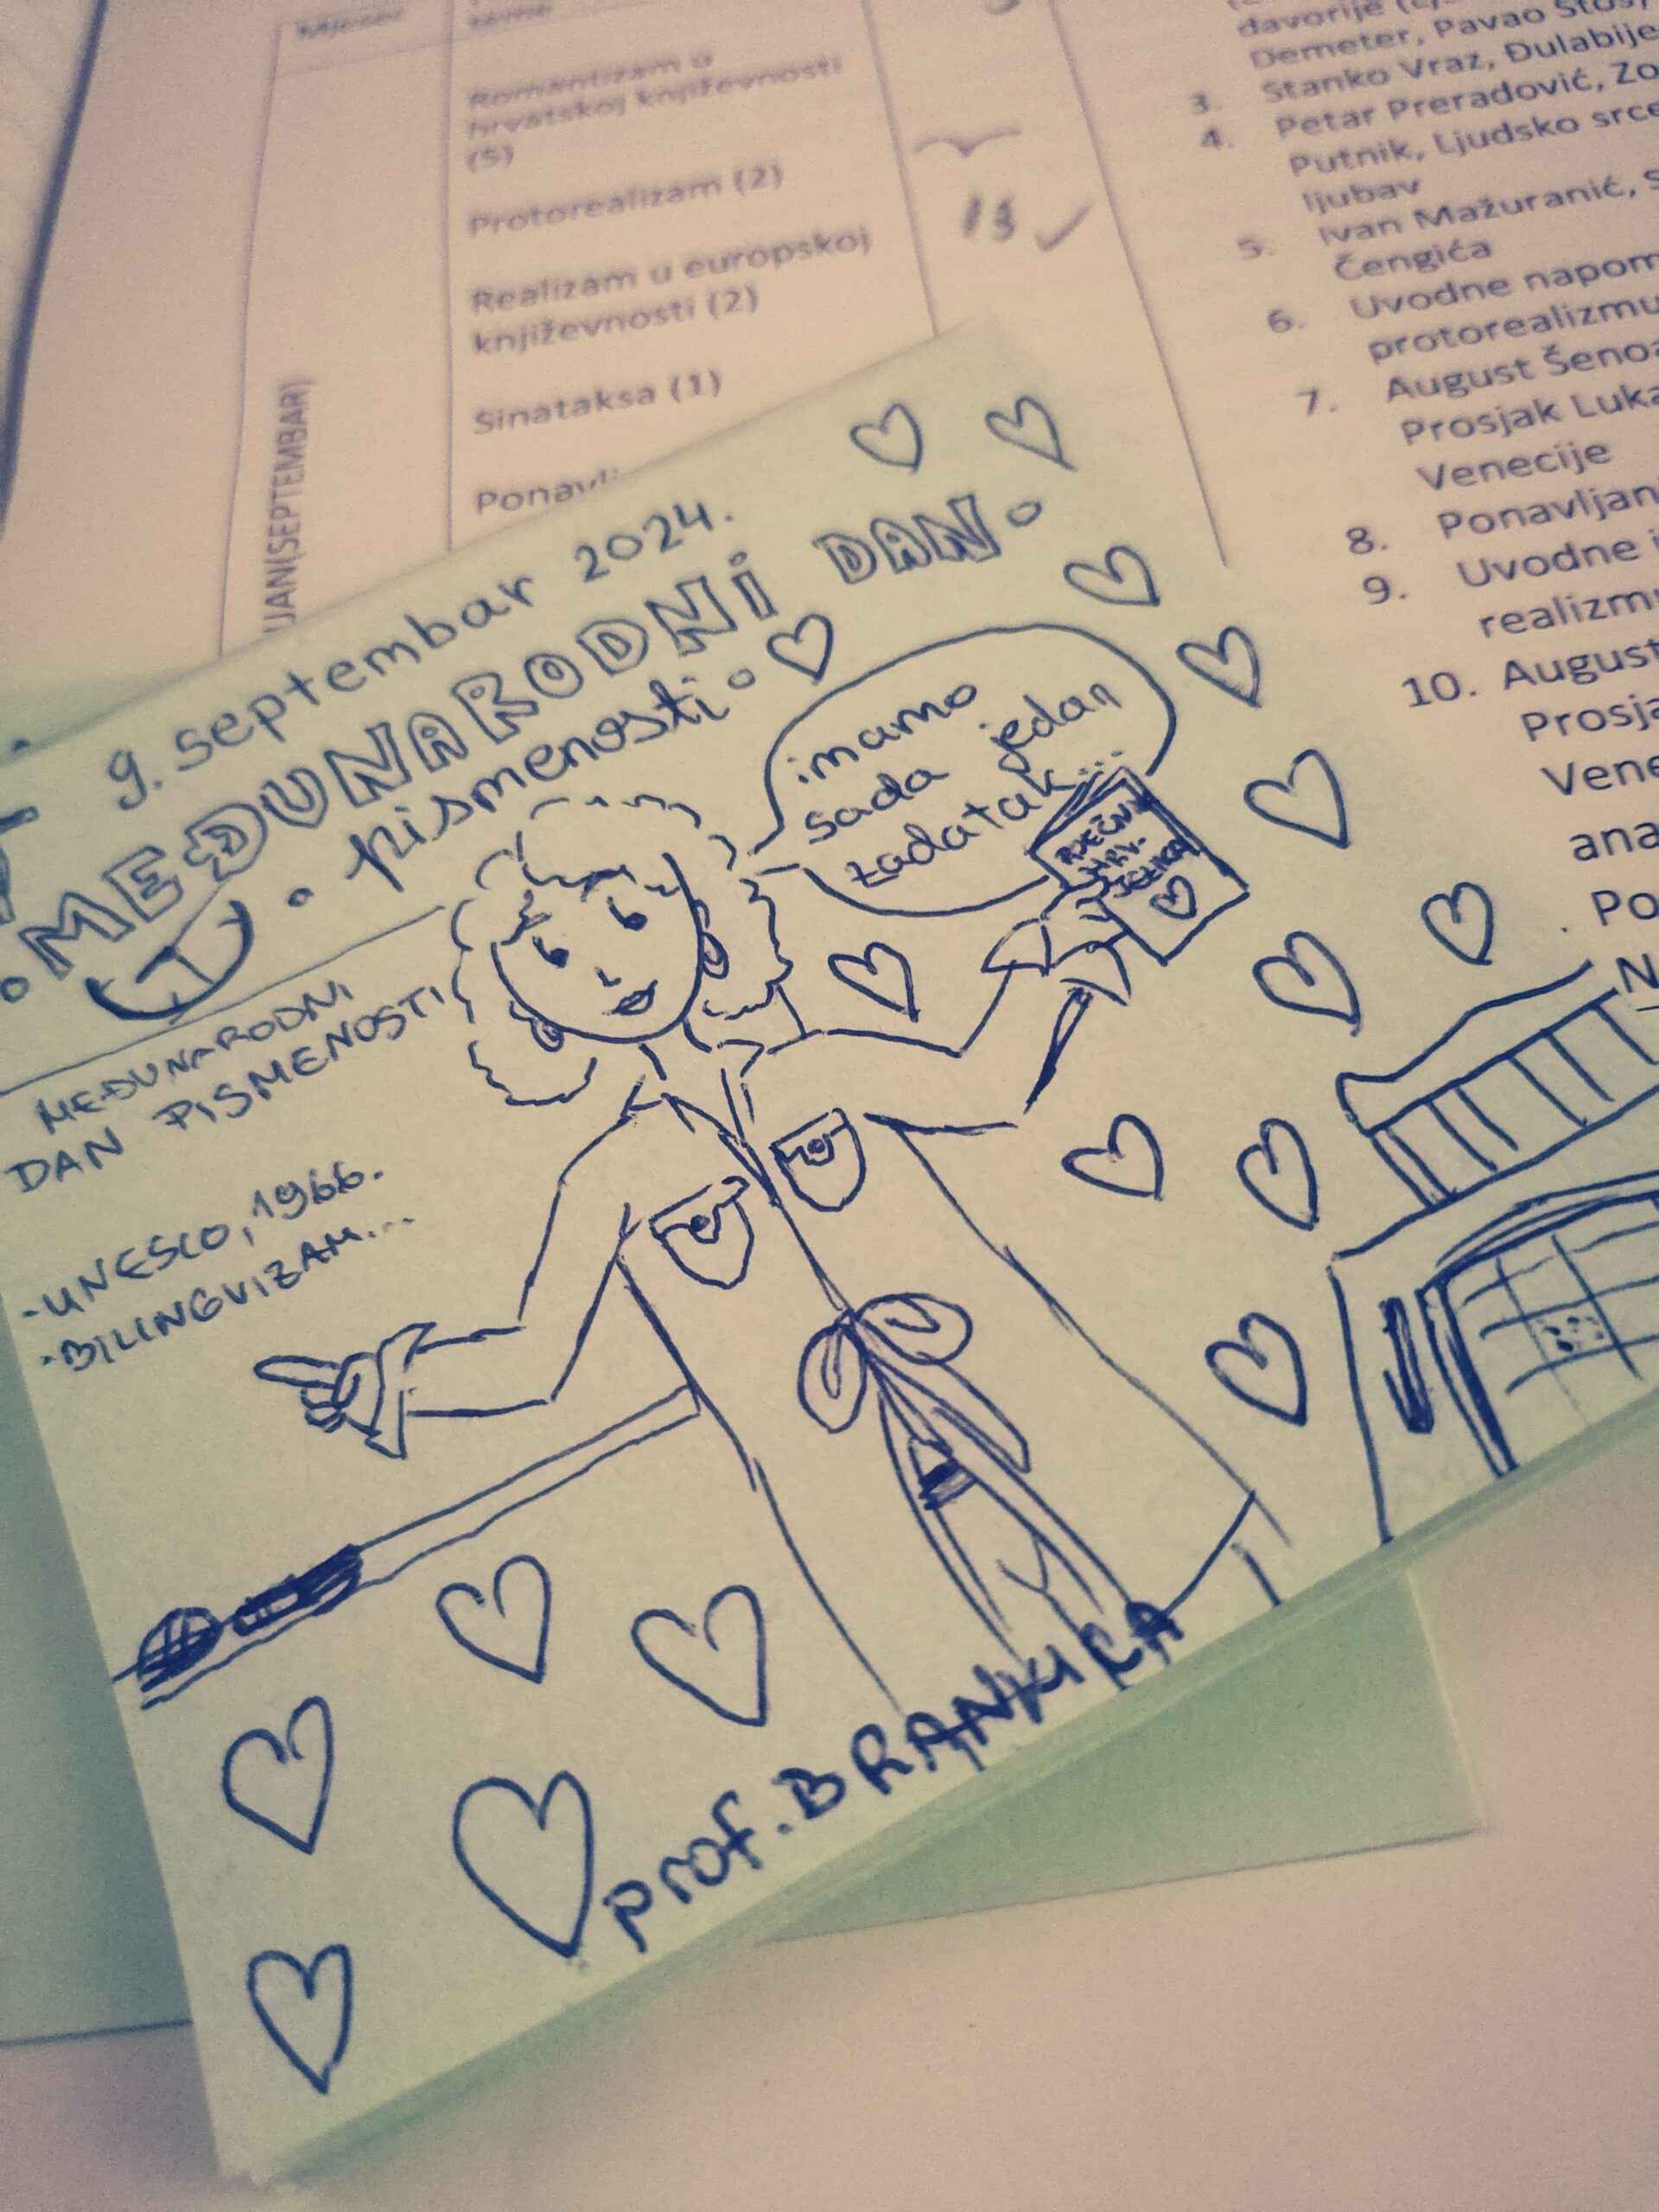 teme
Romantizam u
hrvatskoj književnosti
(5)
Protorealizam (2)
Realizam u europskoj
književnosti (2)
Sinataksa (1)
13 ✓
JAN(SEPTEMBAR)
davorije
Demeter, Pavao
3. Stanko Vraz, Đulabije
4. Petar Preradović,
Putnik, Ljudsko srce
ljubav
5. Ivan Mažuranić,
Čengića
6. Uvodne
protorealizmu
7. August
Prosjak Luka
Venecije
8.
9. Uvodne
10. August
9. septembar 2024.
MEĐUNARODNI DAN
pismenosti
imamo
sada jedan
zadatak...
HRV.
JEZIKA
MEĐUNARODNI
DAN PISMENOSTI
-UNESCO, 1966.
-BILINGVIZAM...
prof. BRANKICA